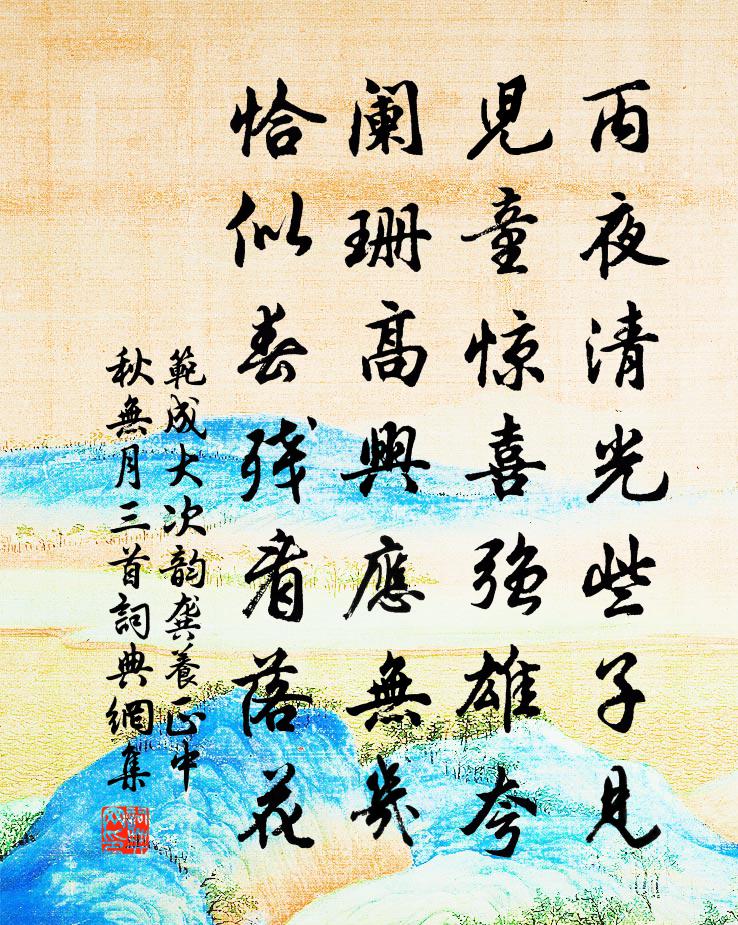 丙夜清光些子見
児童惊喜強雄夸
阑珊高興應無幾
恰似春残看落花
範成大次韵龚養正中
秋無月三首詞典網集